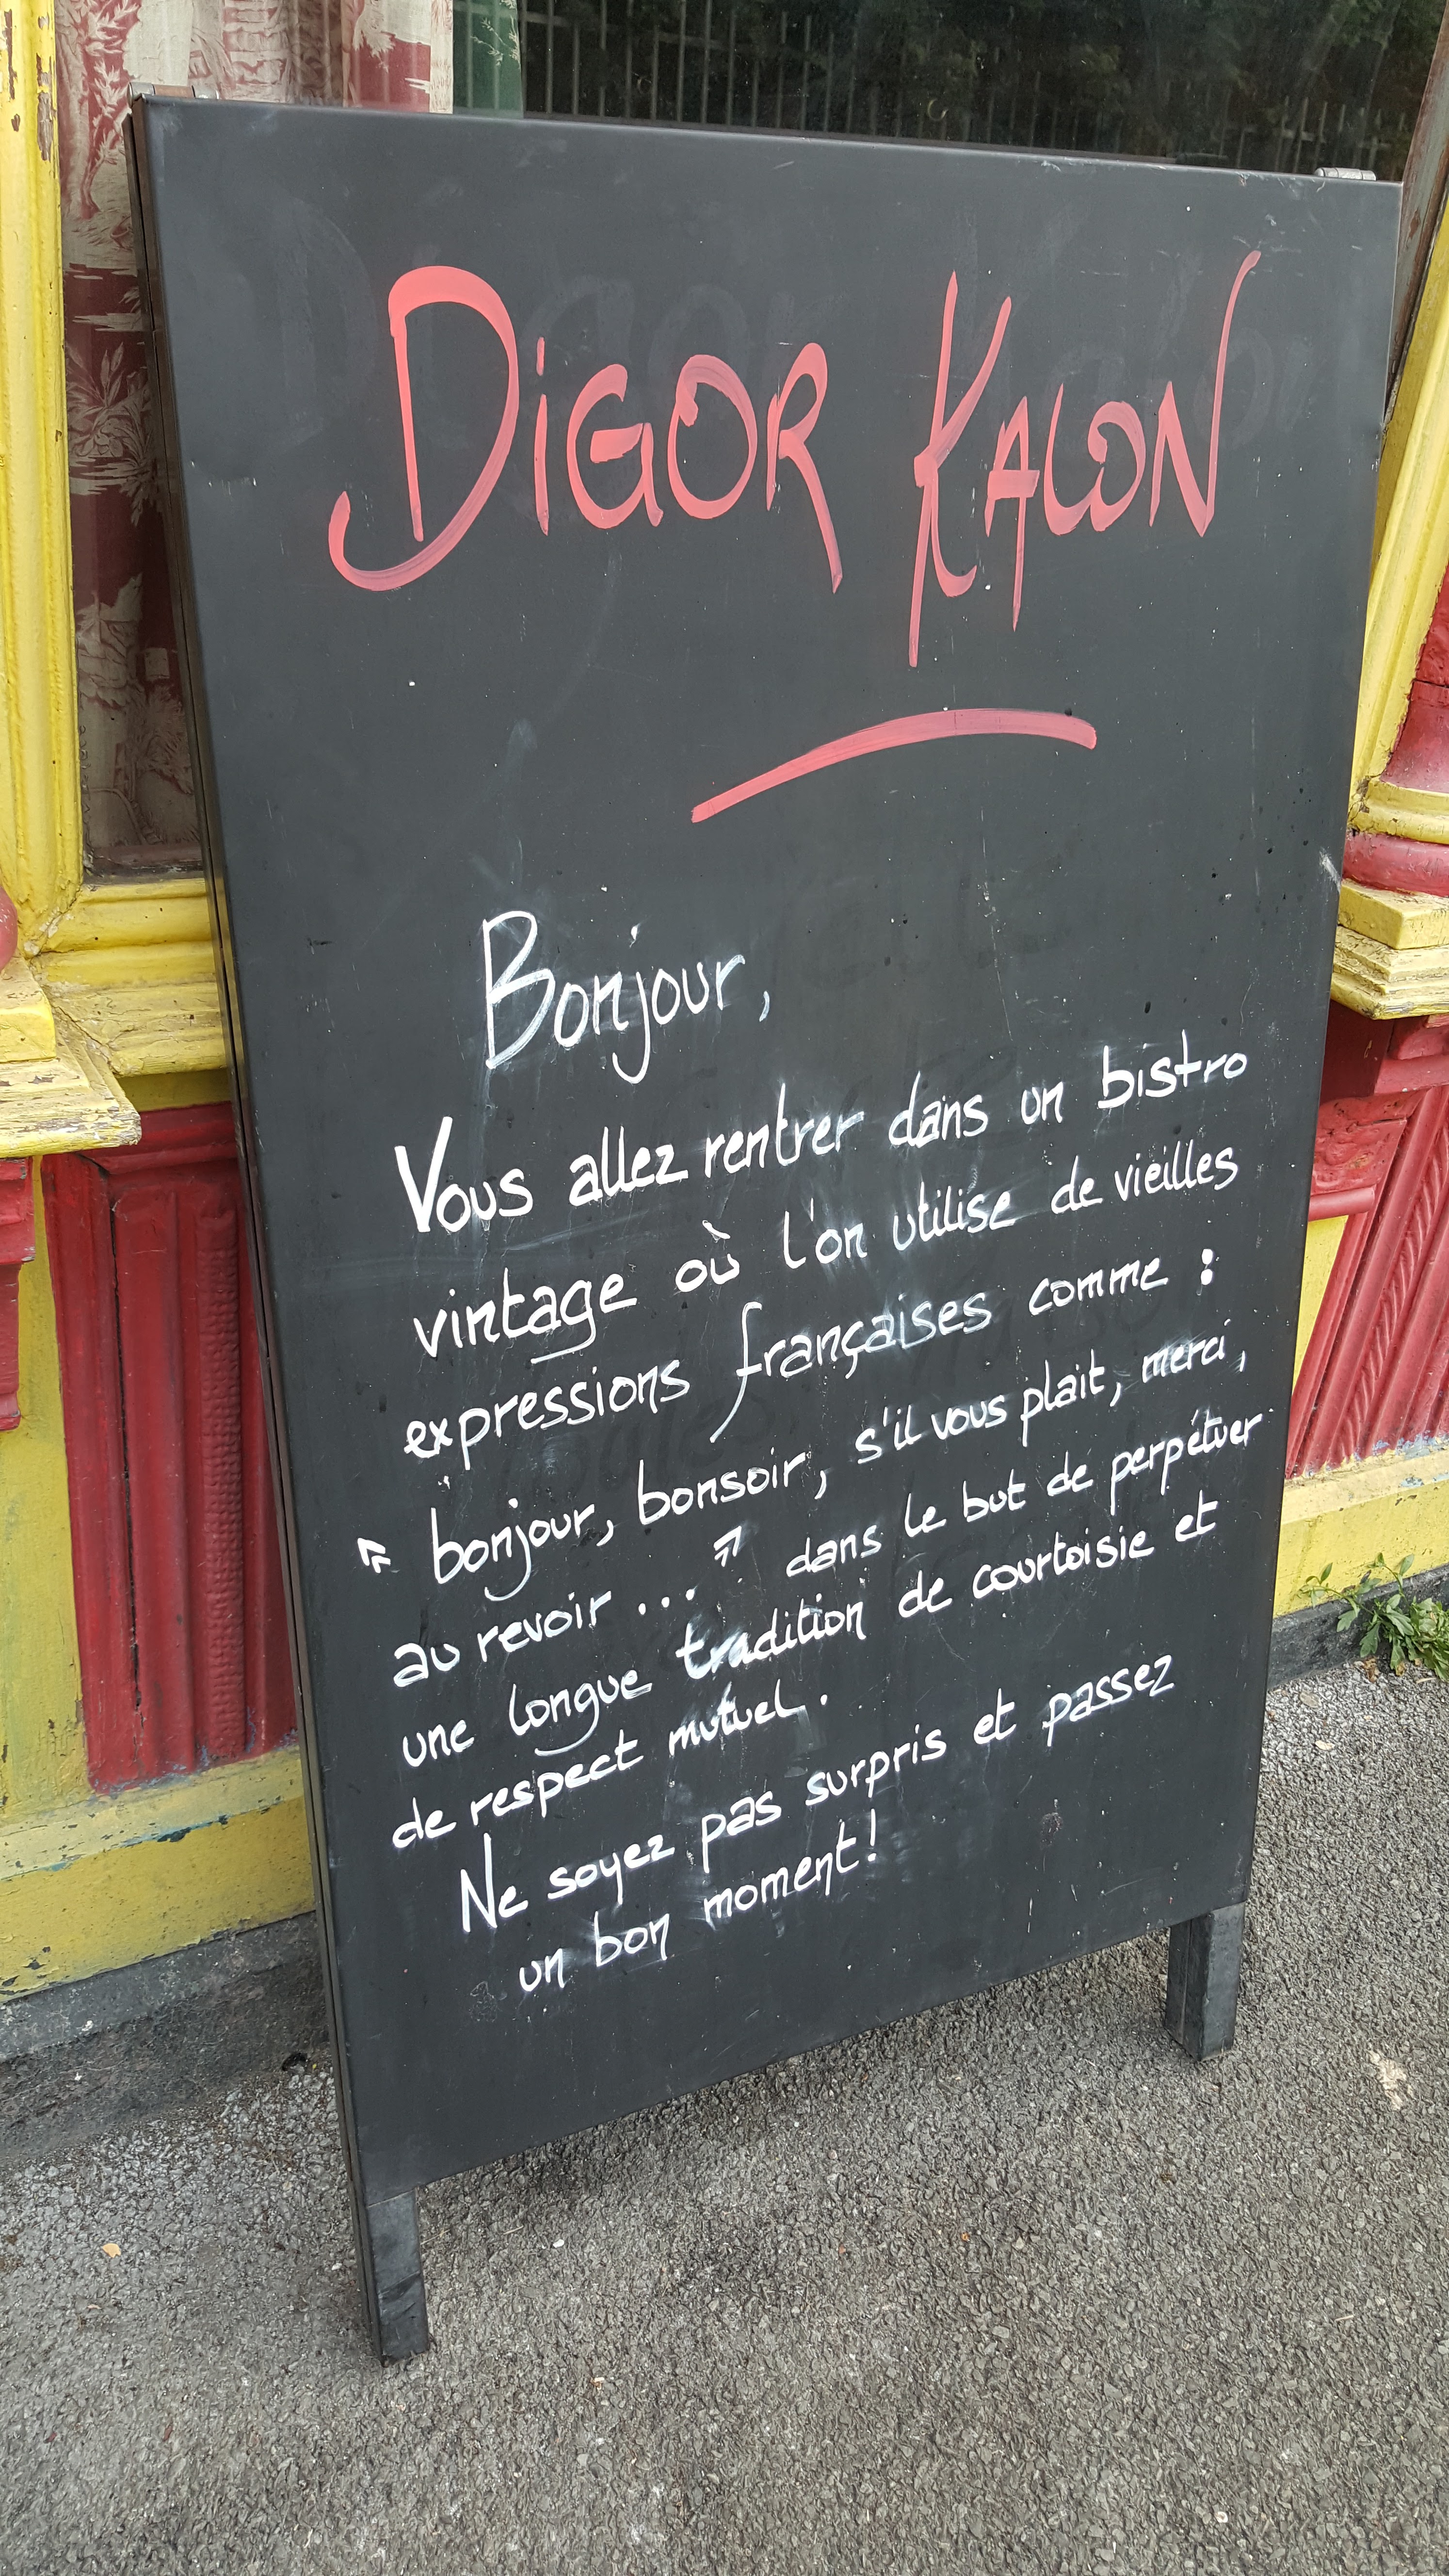 DIGOR KALON
Bonjour,
Vous allez rentrer dans un bistro
vintage où l'on utilise de vieilles
expressions françaises comme :
" bonjour, bonsoir, s'il vous plait, merci,
au revoir ... " dans le but de perpétuer
une longue tradition de courtoisie et
de respect mutuel.
Ne soyez pas surpris et passez
un bon moment!